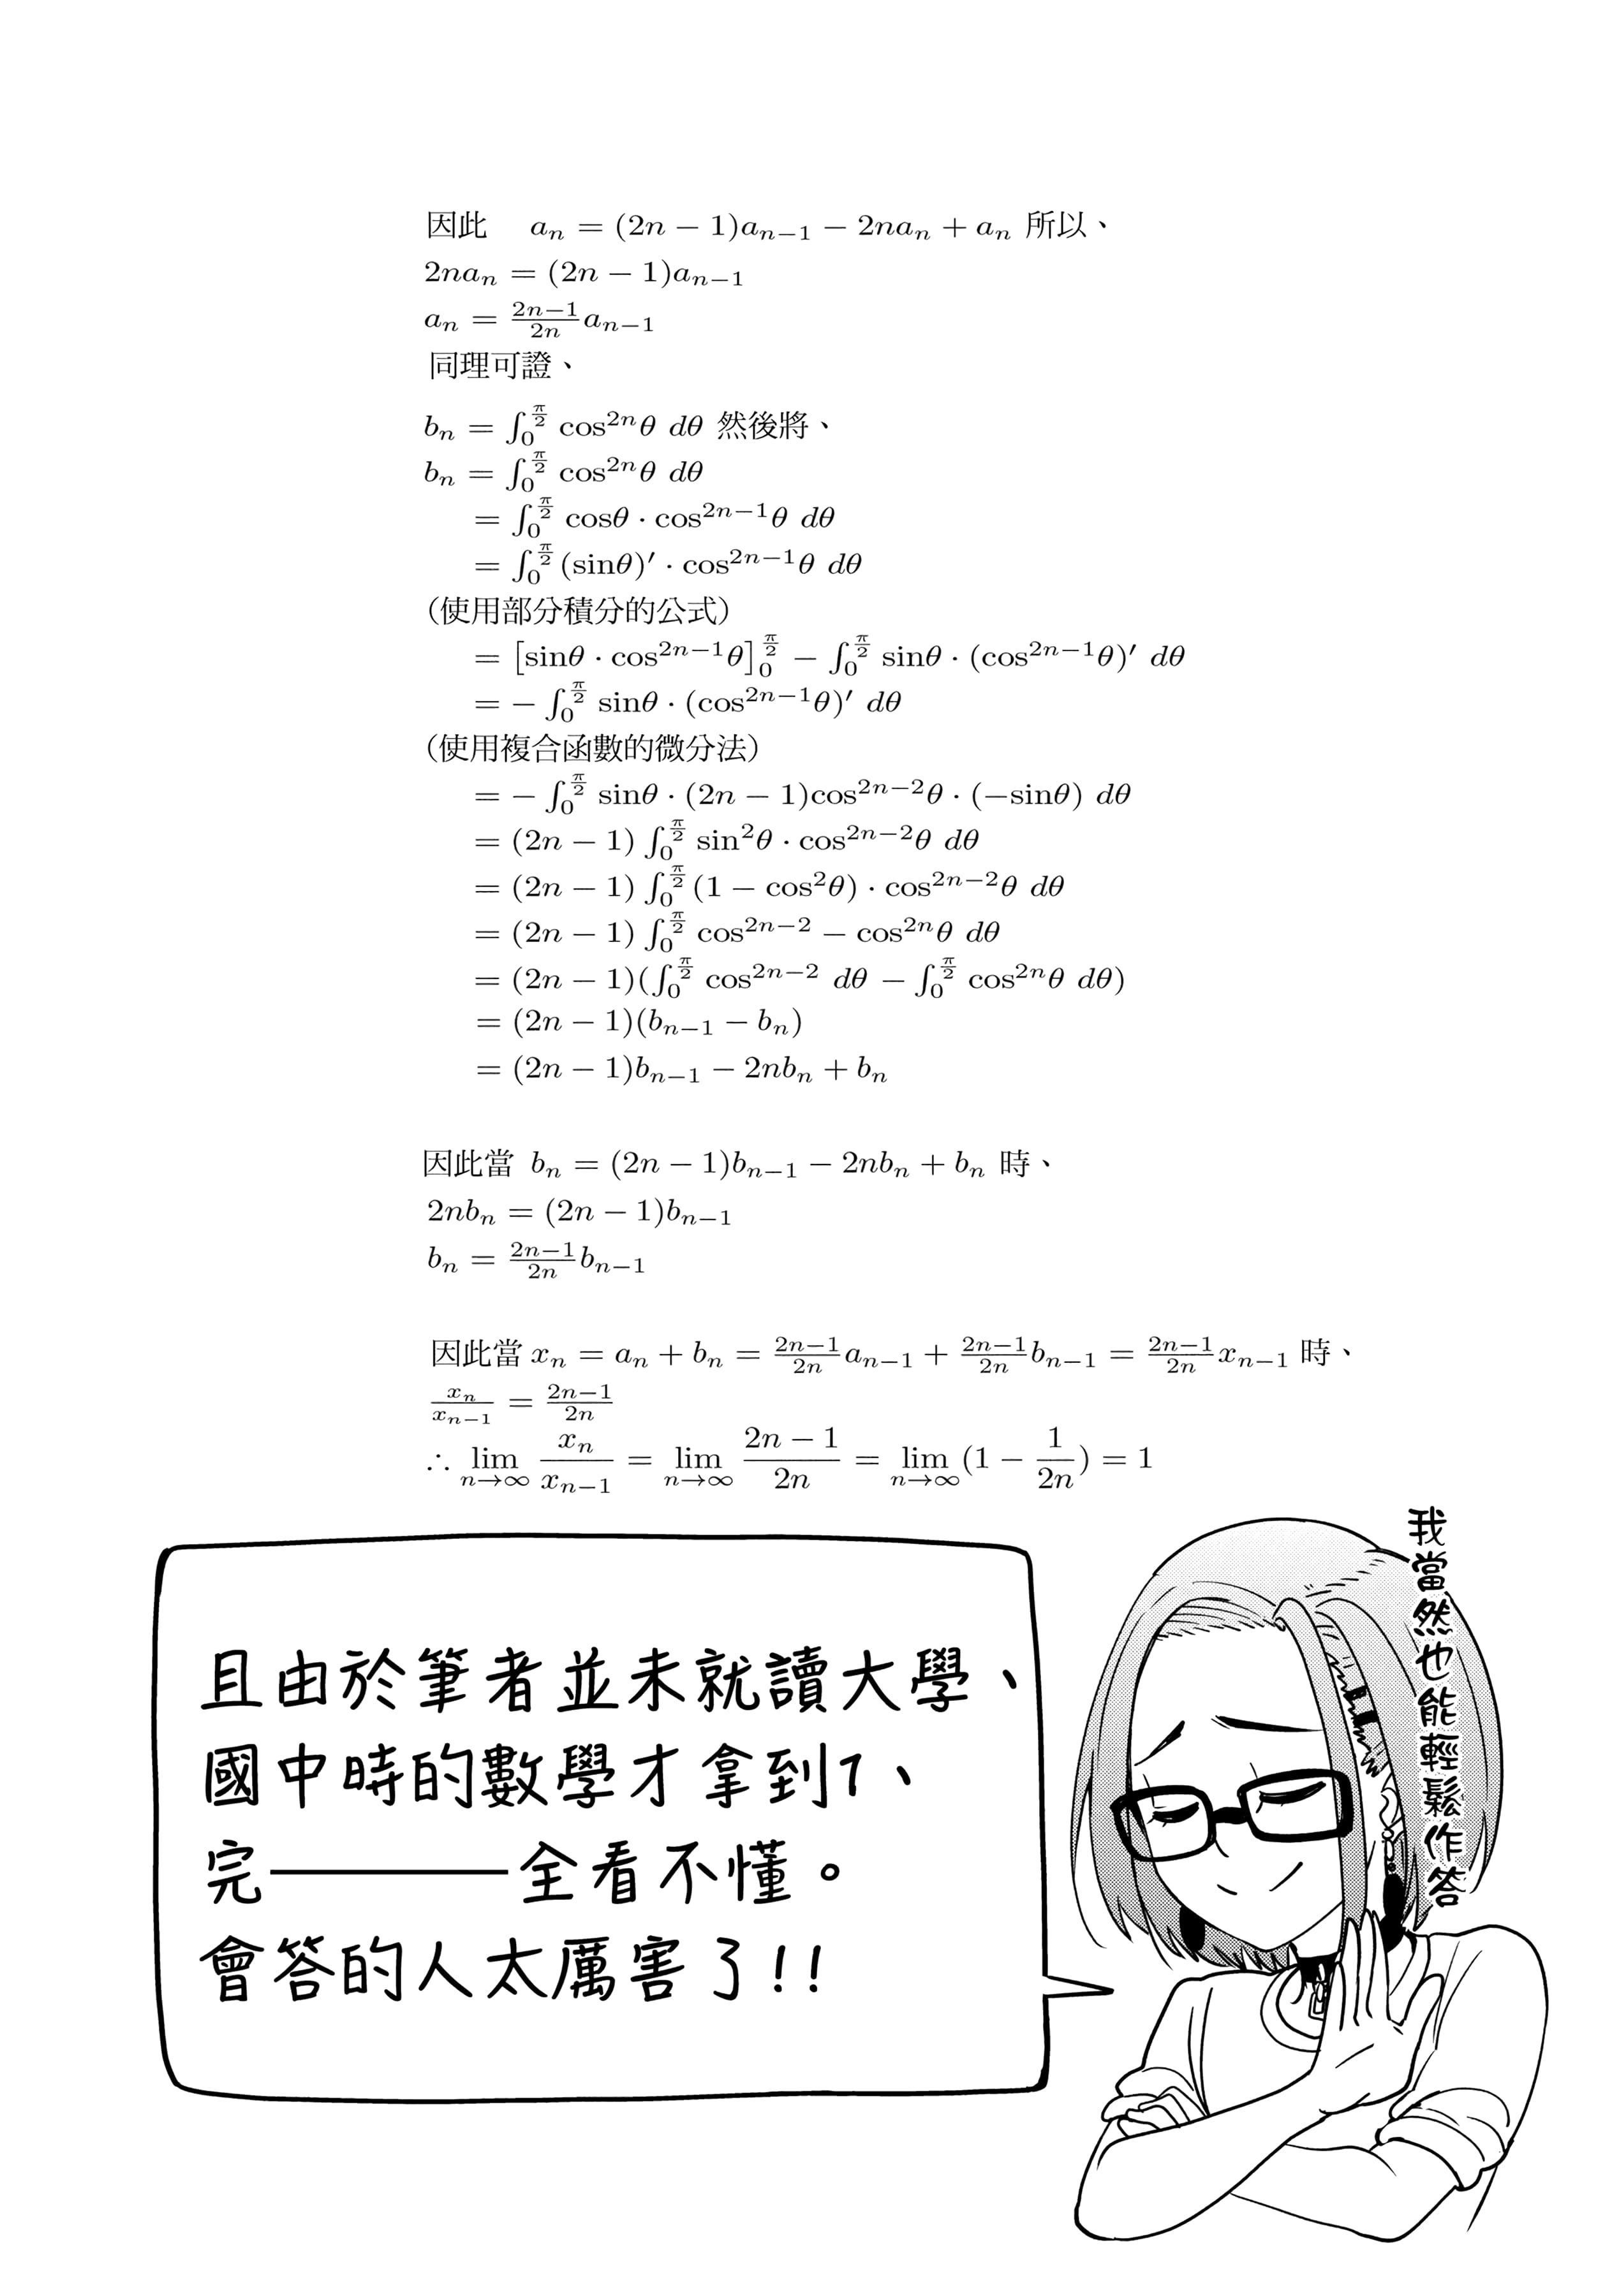 因此 aₙ = (2n − 1)aₙ₋₁ − 2naₙ + aₙ 所以、
2naₙ = (2n − 1)aₙ₋₁
aₙ = \frac{2n−1}{2n}aₙ₋₁
同理可證、
bₙ = ∫_0^{\frac{π}{2}} cos²ⁿθ dθ 然後將、
bₙ = ∫_0^{\frac{π}{2}} cos²ⁿθ dθ
= ∫_0^{\frac{π}{2}} cosθ · cos²ⁿ⁻¹θ dθ
= ∫_0^{\frac{π}{2}} (sinθ)′ · cos²ⁿ⁻¹θ dθ
(使用部分積分的公式)
= [sinθ · cos²ⁿ⁻¹θ]_0^{\frac{π}{2}} − ∫_0^{\frac{π}{2}} sinθ · (cos²ⁿ⁻¹θ)′ dθ
= − ∫_0^{\frac{π}{2}} sinθ · (cos²ⁿ⁻¹θ)′ dθ
(使用複合函數的微分法)
= − ∫_0^{\frac{π}{2}} sinθ · (2n − 1)cos²ⁿ⁻²θ · (−sinθ) dθ
= (2n − 1) ∫_0^{\frac{π}{2}} sin²θ · cos²ⁿ⁻²θ dθ
= (2n − 1) ∫_0^{\frac{π}{2}} (1 − cos²θ) · cos²ⁿ⁻²θ dθ
= (2n − 1) ∫_0^{\frac{π}{2}} cos²ⁿ⁻² − cos²ⁿθ dθ
= (2n − 1)(∫_0^{\frac{π}{2}} cos²ⁿ⁻² dθ − ∫_0^{\frac{π}{2}} cos²ⁿθ dθ)
= (2n − 1)(bₙ₋₁ − bₙ)
= (2n − 1)bₙ₋₁ − 2nbₙ + bₙ
因此當 bₙ = (2n − 1)bₙ₋₁ − 2nbₙ + bₙ 時、
2nbₙ = (2n − 1)bₙ₋₁
bₙ = \frac{2n−1}{2n}bₙ₋₁
因此當 xₙ = aₙ + bₙ = \frac{2n−1}{2n}aₙ₋₁ + \frac{2n−1}{2n}bₙ₋₁ = \frac{2n−1}{2n}xₙ₋₁ 時、
\frac{xₙ}{xₙ₋₁} = \frac{2n−1}{2n}
∴ \lim_{n→∞} \frac{xₙ}{xₙ₋₁} = \lim_{n→∞} \frac{2n − 1}{2n} = \lim_{n→∞} (1 − \frac{1}{2n}) = 1
我當然也能輕鬆作答
且由於筆者並未就讀大學、
國中時的數學才拿到1、
完————全看不懂。
會答的人太厲害了!!